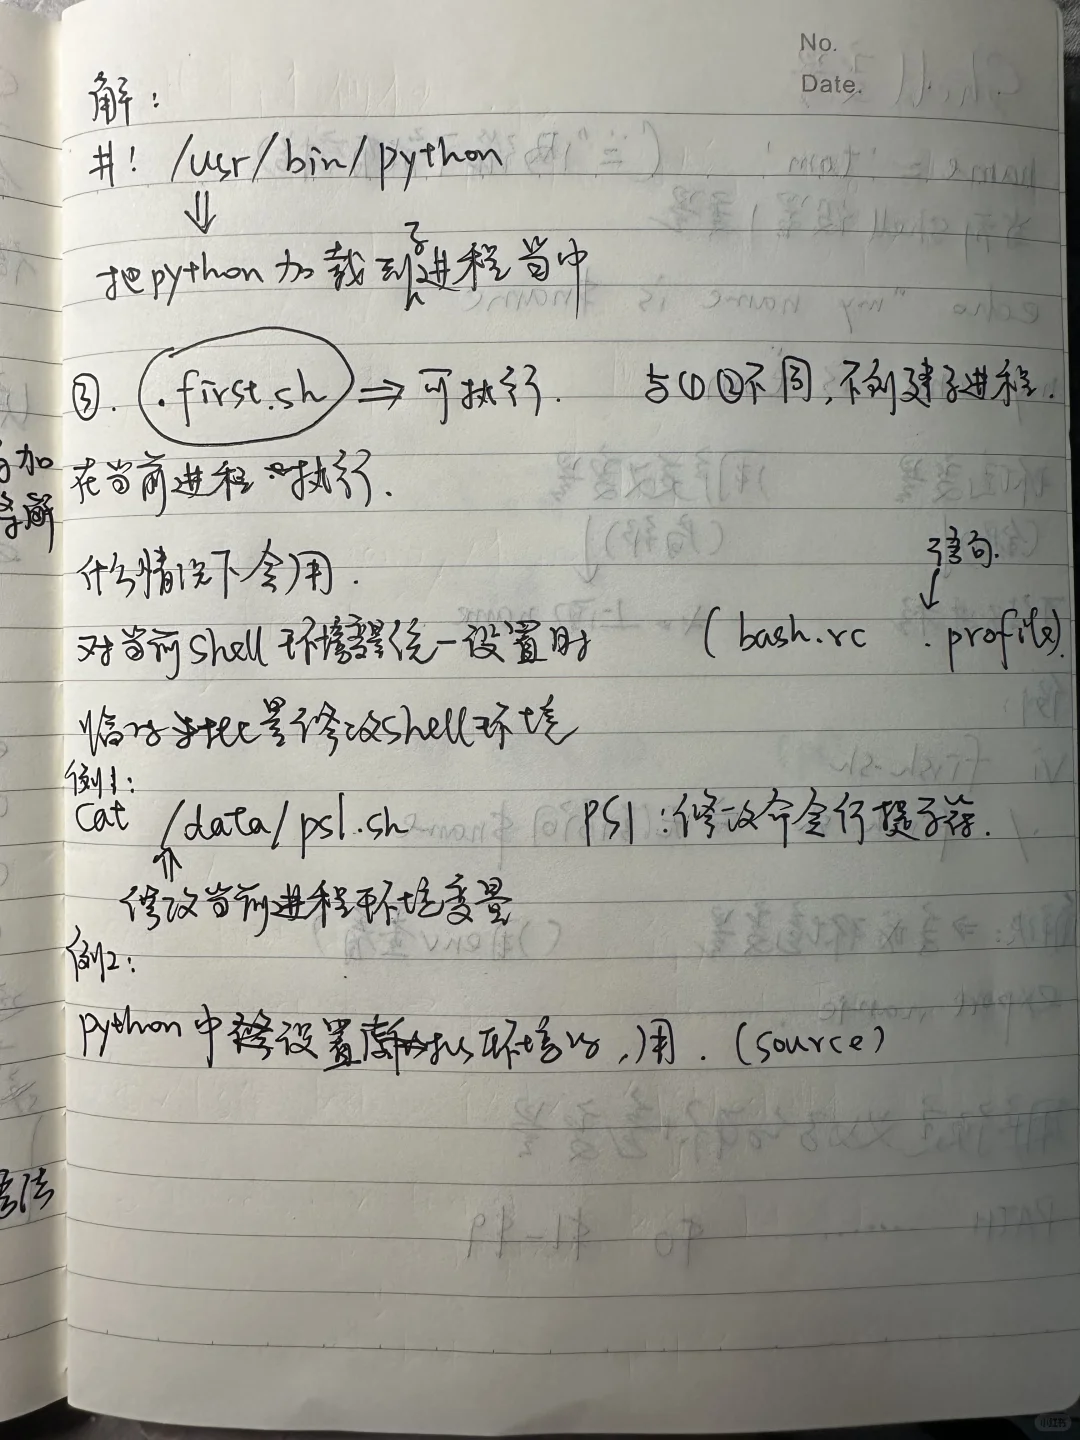 No.
Date.
解：
#！/usr/bin/python
⇓
把python加载到子进程当中
③. .first.sh ⇒ 可执行. 与①②不同，不创建子进程.
在当前进程执行.
什么情况下会用.
语句.
对当前shell环境变量统一设置时 (bash.rc . profile).
临时批量修改shell环境
例1：
cat /data/ps1.sh PS1：修改命令行提示符.
⇑
修改当前进程环境变量
例2：
python中设置虚拟环境时，用. (source)
加
解
语法
小红书